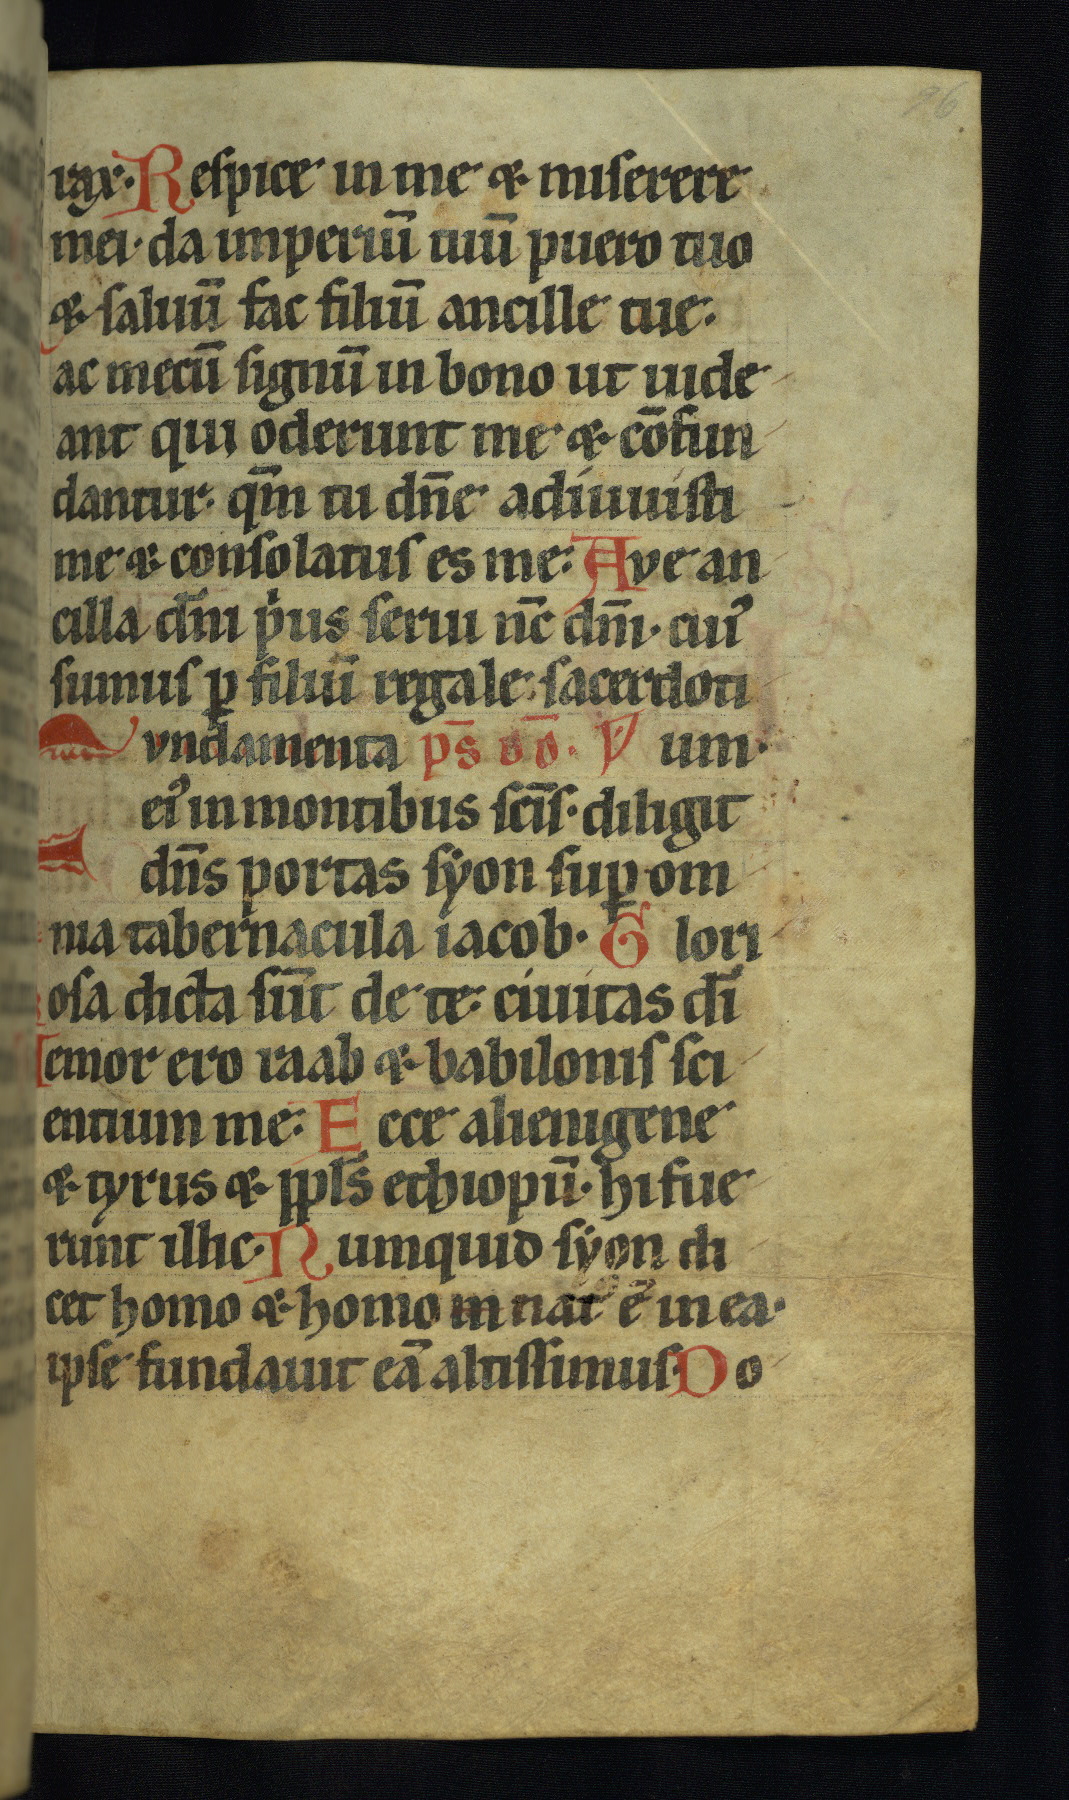 rax. Respice in me & miserere
mei. da imperiū tuū puero tuo
& saluū fac filiū ancille tue.
ac mecū signū in bono ut uide
ant qui oderunt me & cōfun
dantur. qm̄ tu dn̄e adiuuisti
me & consolatus es me. Ave an
cilla dn̄i p̉us serui nc̄ dn̄i. cui᾿
sumus p filiū regale. sacerdoti
vndamenta ps̄ dd̄. um.
ei᾿ in montibus scīs. diligit
dn̄s portas sẏon sup om
nia tabernacula iacob. G lori
osa dicta sūt de te. ciuitas dī
emor ero raab & babilonis sci
entium me. E cce alienigene
& tyrus & ppl̄s ethiopū. hi fue
runt illic. N umquid sẏon di
cet homo & homo nat᾿ ē in ea.
ipse fundauit eā altissimus. Do